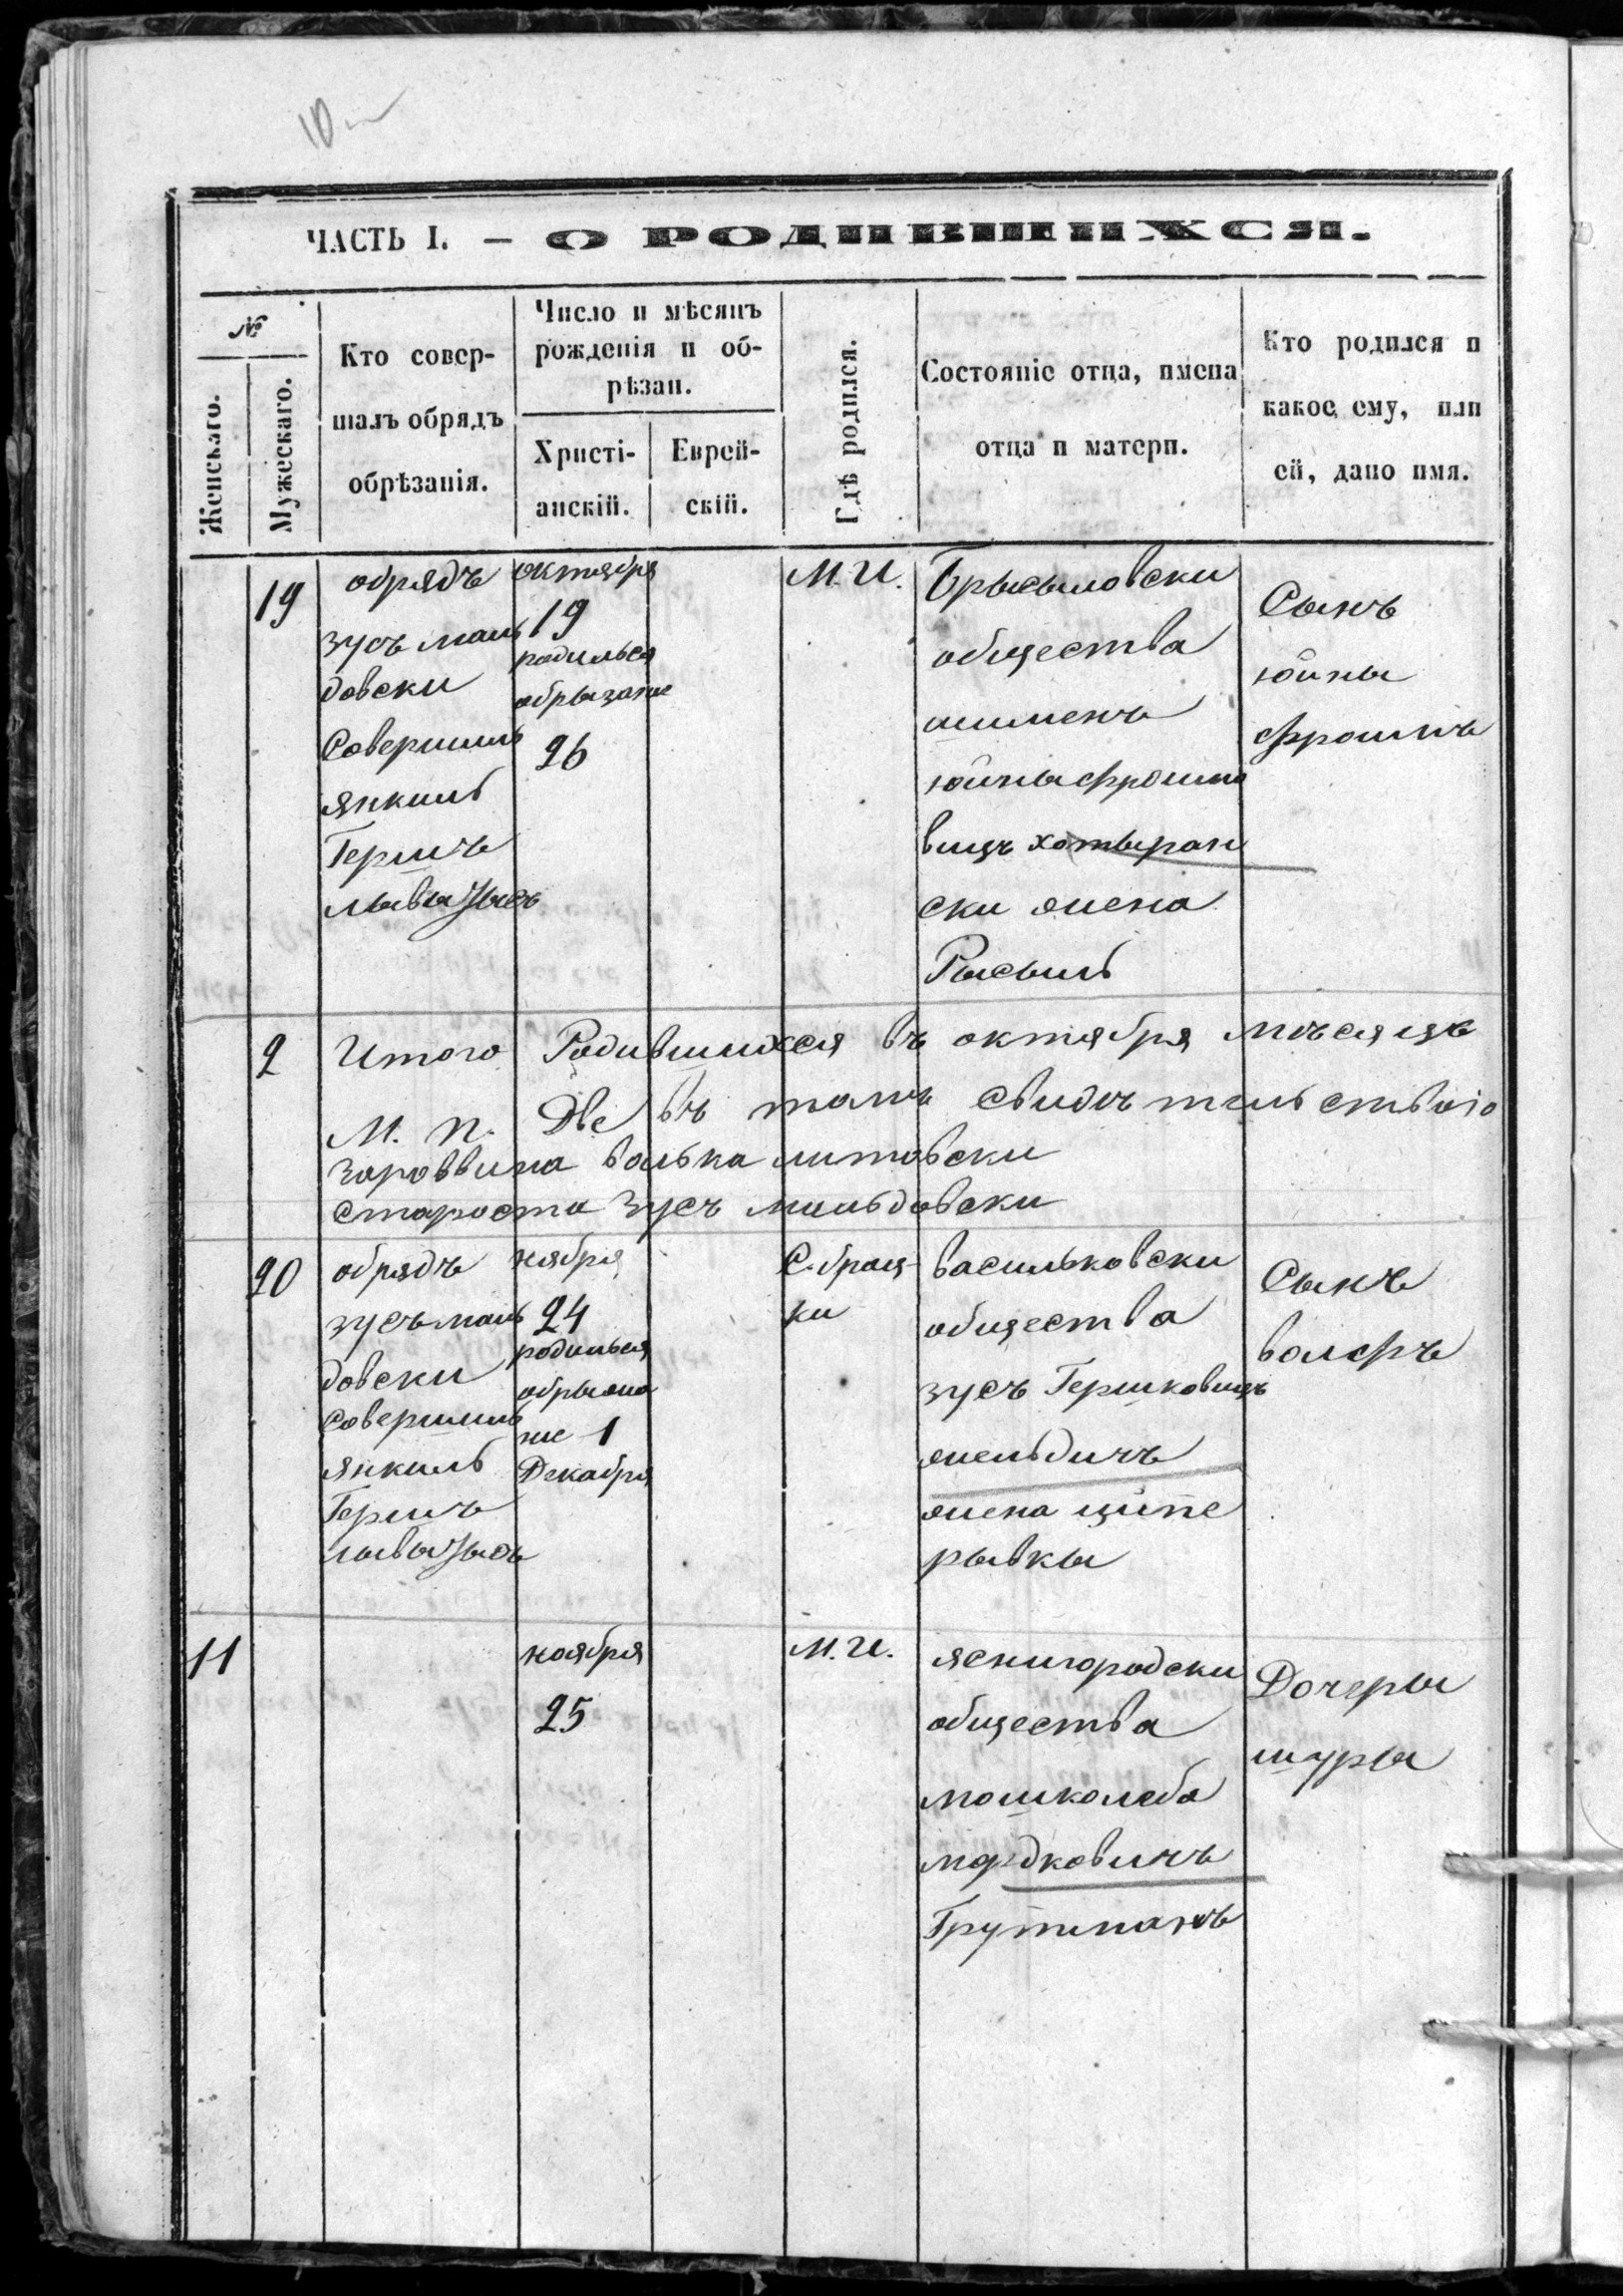 10
ЧАСТЬ I. — О РОДИВШИХСЯ.
№
Женскаго.
Мужескаго.
Кто совер-
шалъ обрядъ
обрѣзанія.
Число и мѣсяцъ
рожденія и об-
рѣзан.
Христі-
анскій.
Еврей-
скій.
Гдѣ родился.
Состояніе отца, имена
отца и матери.
Кто родился и
какое ему, или
ей, дано имя.
19
обрядъ
зусъ маль
довски
Совершиль
янкиль
Гершъ
октября
19
родилься
обрызание
26
М. И.
Брысыловски
общества
юйны фроимо
вицъ хотыран
ски жена
Рысыль
Сынъ
юйны
фроимъ
2
Итого Родившихся въ октября мѣсяцъ
М. п. Две въ томъ свидѣтельствою
волька литовски
староста Зусъ мальдовски
20
обрядъ
зусъ маль
довски
Совершиль
янкиль
Гершъ
ноября
24
родилься
обрыза
ние 1
Декабря
С. брая-
ки
васильковски
общества
зусъ Гершковицъ
жельдинъ
жена ципе
рывкы
Сынъ
волфъ
11
ноября
25
М. И.
яснигородски
общества
мошколеба
мордковичъ
Грутманъ
Дочеры
шуры